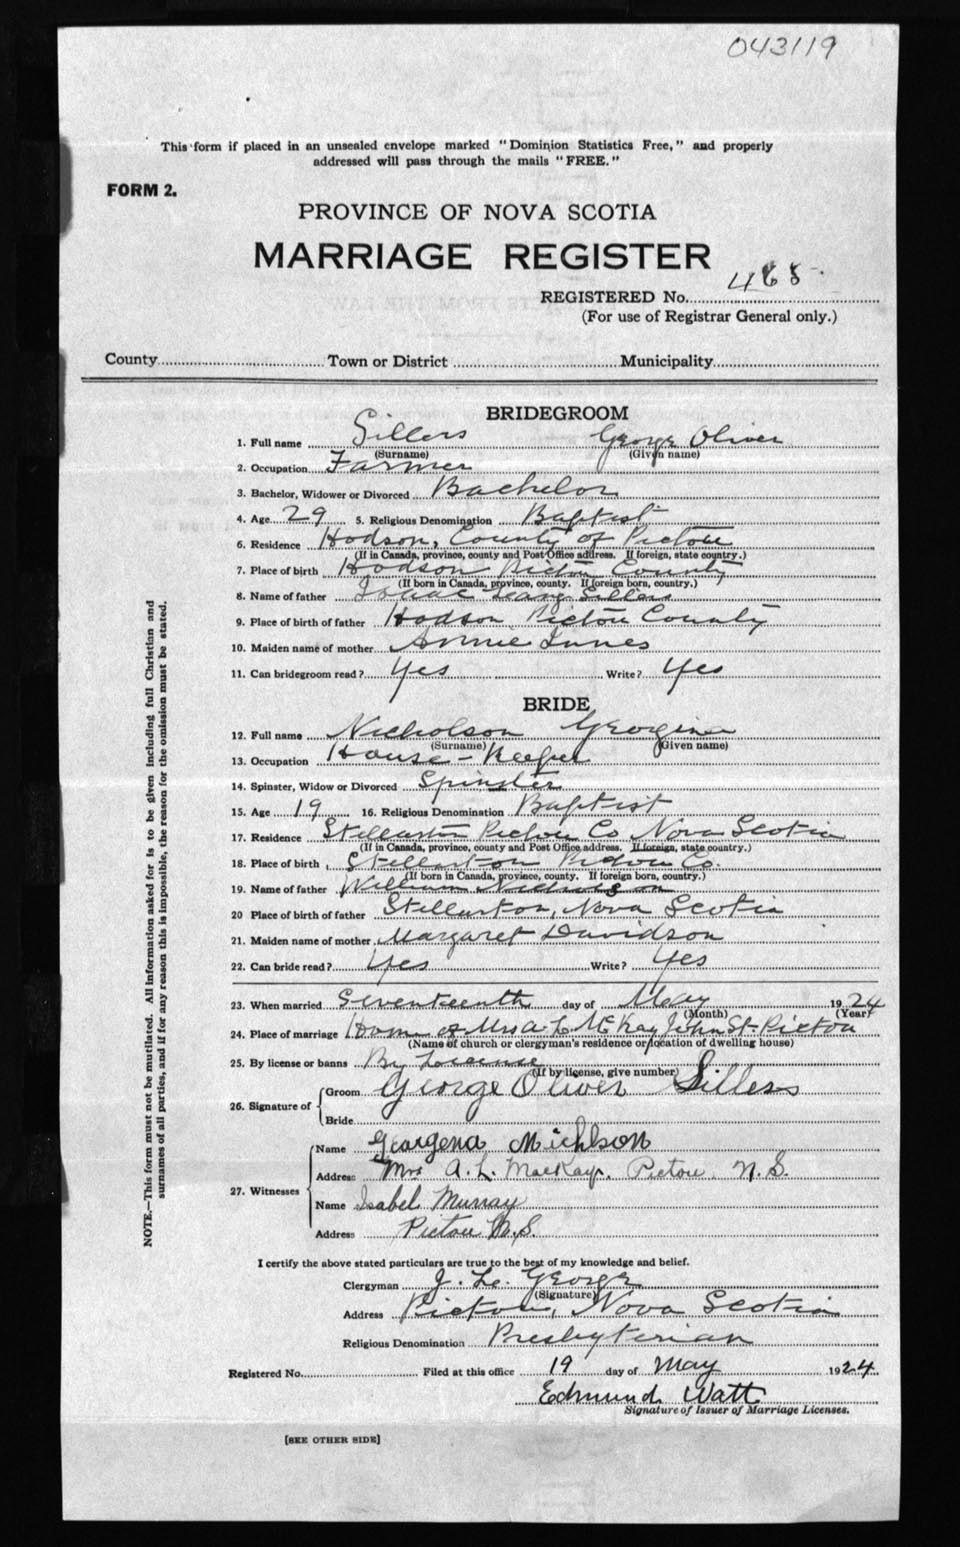 043119
This form if placed in an unsealed envelope marked "Dominion Statistics Free," and properly
addressed will pass through the mails "FREE."
FORM 2.
PROVINCE OF NOVA SCOTIA
MARRIAGE REGISTER
REGISTERED No. 468
(For use of Registrar General only.)
County Town or District Municipality
BRIDEGROOM
1. Full name Sillers George Oliver
(Surname) (Given name)
2. Occupation Farmer
3. Bachelor, Widower or Divorced Bachelor
4. Age 29 5. Religious Denomination Baptist
6. Residence Hodson, County of Pictou
(If in Canada, province, county and Post Office address. If foreign, state country.)
7. Place of birth Hodson Pictou County
(If born in Canada, province, county. If foreign born, country.)
8. Name of father Isaac Sillers
9. Place of birth of father Hodson Pictou County
10. Maiden name of mother Annie Innes
11. Can bridegroom read? Yes Write? Yes
BRIDE
12. Full name Nicholson Georgina
(Surname) (Given name)
13. Occupation House-Keeper
14. Spinster, Widow or Divorced Spinster
15. Age 19 16. Religious Denomination Baptist
17. Residence Stellarton Pictou Co Nova Scotia
(If in Canada, province, county and Post Office address. If foreign, state country.)
18. Place of birth Stellarton Pictou Co.
(If born in Canada, province, county. If foreign born, country.)
19. Name of father William Nicholson
20 Place of birth of father Stellarton, Nova Scotia
21. Maiden name of mother Margaret Davidson
22. Can bride read? Yes Write? Yes
23. When married Seventeenth day of May 1924
(Month) (Year)
24. Place of marriage Home of Mrs A. L. McKay John St- Pictou
(Name of church or clergyman's residence or location of dwelling house)
25. By license or banns By License
(If by license, give number)
26. Signature of Groom George Oliver Sillers
Bride
27. Witnesses Name Georgena Nichlson
Address Mrs A. L. MacKay, Pictou, N.S.
Name Isabel Murray
Address Pictou N.S.
I certify the above stated particulars are true to the best of my knowledge and belief.
Clergyman J. L. George
(Signature)
Address Pictou, Nova Scotia
Religious Denomination Presbyterian
Registered No. Filed at this office 19 day of May 1924
Edmund Watt
Signature of Issuer of Marriage Licenses.
[SEE OTHER SIDE]
NOTE.—This form must not be mutilated. All information asked for is to be given including full Christian and
surnames of all parties, and if for any reason this is impossible, the reason for the omission must be stated.